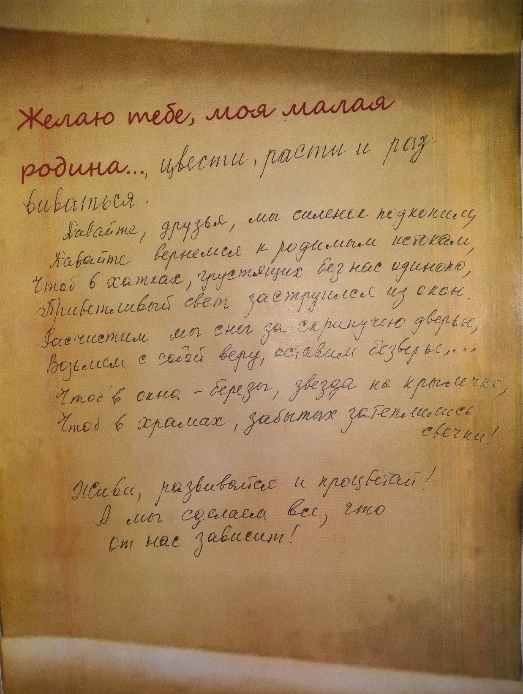 Желаю тебе, моя малая
родина..., цвести, расти и раз-
виваться.
Давайте, друзья, мы силенок подкопим,
Давайте вернемся к родимым истокам,
Чтоб в хатках, грустящих без нас одиноко,
Приветливый свет заструился из окон.
Расчистим мы снег за скрипучею дверью,
Возьмем с собой веру, оставим безверье,...
Чтоб в окна - березы, звезда на крылечко,
Чтоб в храмах, забытых затеплились
свечки!
Живи, развивайся и процветай!
А мы сделаем все, что
от нас зависит!